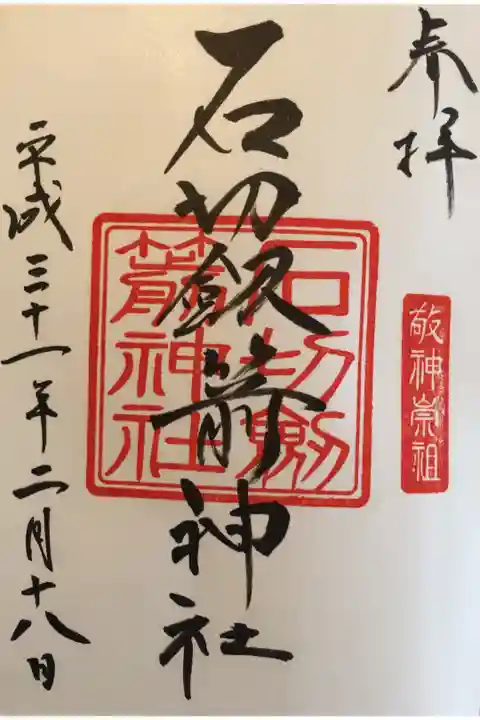 奉拝
敬神崇祖
石切釼箭神社
石切劔
箭神社
平成三十一年二月十八日